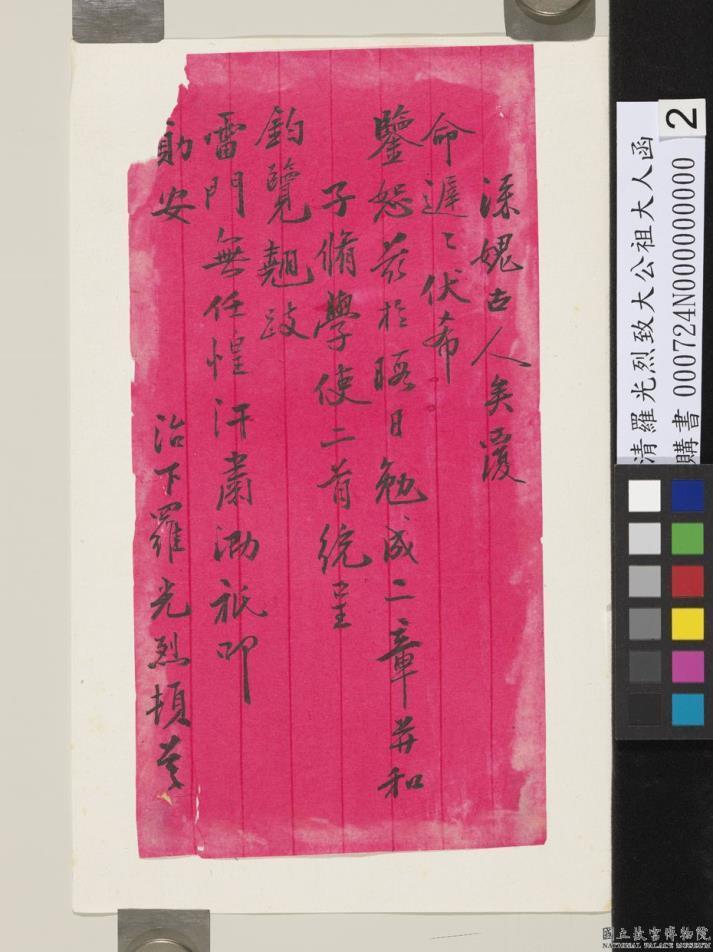 深媿古人矣覆
命遲〻伏希
鑒恕茲於晤日勉成二章并和
子脩學使二首統呈
鈞覽翹跂
雷門無任惶汗肅泐祇叩
勛安
治下羅光烈頓首
清羅光烈致大公祖大人函
購書 000724N0000000000
2
國立故宮博物院
NATIONAL PALACE MUSEUM